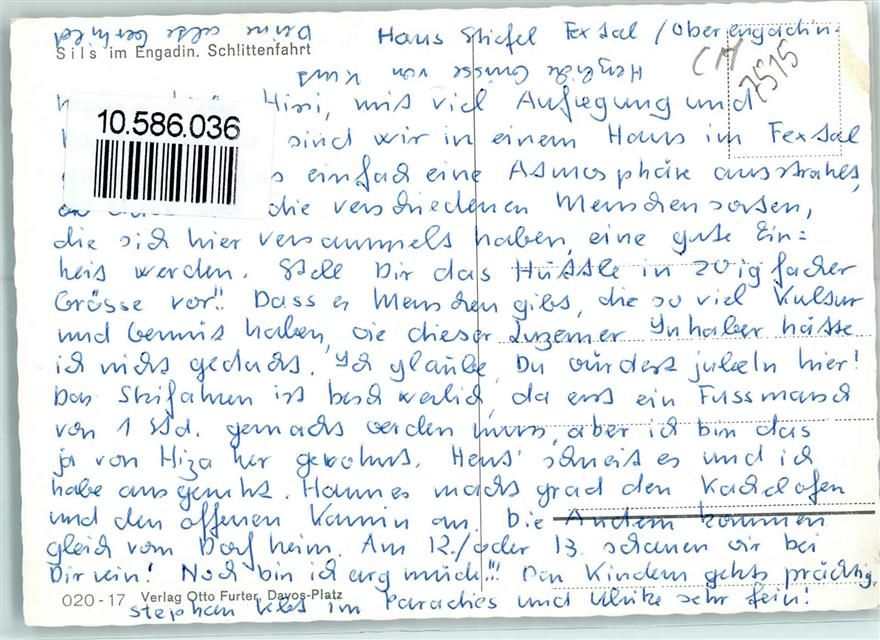 Deine alte Gertrud
Haus Stiefel Fextal / Oberengadin.
Sils im Engadin. Schlittenfahrt
CH 7515
Herzliche Grüsse von Kurt
10.586.036
Himi, mit viel Aufregung und
sind wir in einem Haus im Fextal
einfach eine Atmosphäre ausstrahlt,
die verschiedenen Menschensorten,
die sich hier versammelt haben, eine gute Ein=
heit werden. Stell Dir das Hüttle in 20ig facher
Grösse vor!! Dass es Menschen gibt, die so viel Kultur
und haben, wie dieser Luzerner Inhaber hätte
ich nicht gedacht. Ich glaube, Du würdest jubeln hier!
Das Skifahren ist beschwerlich, da erst ein Fussmarsch
von 1 Std. gemacht werden muss, aber ich bin das
ja von her gewohnt. Heut' schneit es und ich
habe ausgeruht. Hannes macht grad den Kachelofen
und den offenen Kamin an. Die Andern kommen
gleich vom Dorf heim. Am 12./oder 13. schauen wir bei
Dir rein! Noch bin ich arg müde!!! Den Kindern gehts prächtig.
020-17 Verlag Otto Furter, Davos-Platz
Stephan lebt im Paradies und Ulrike sehr fein!